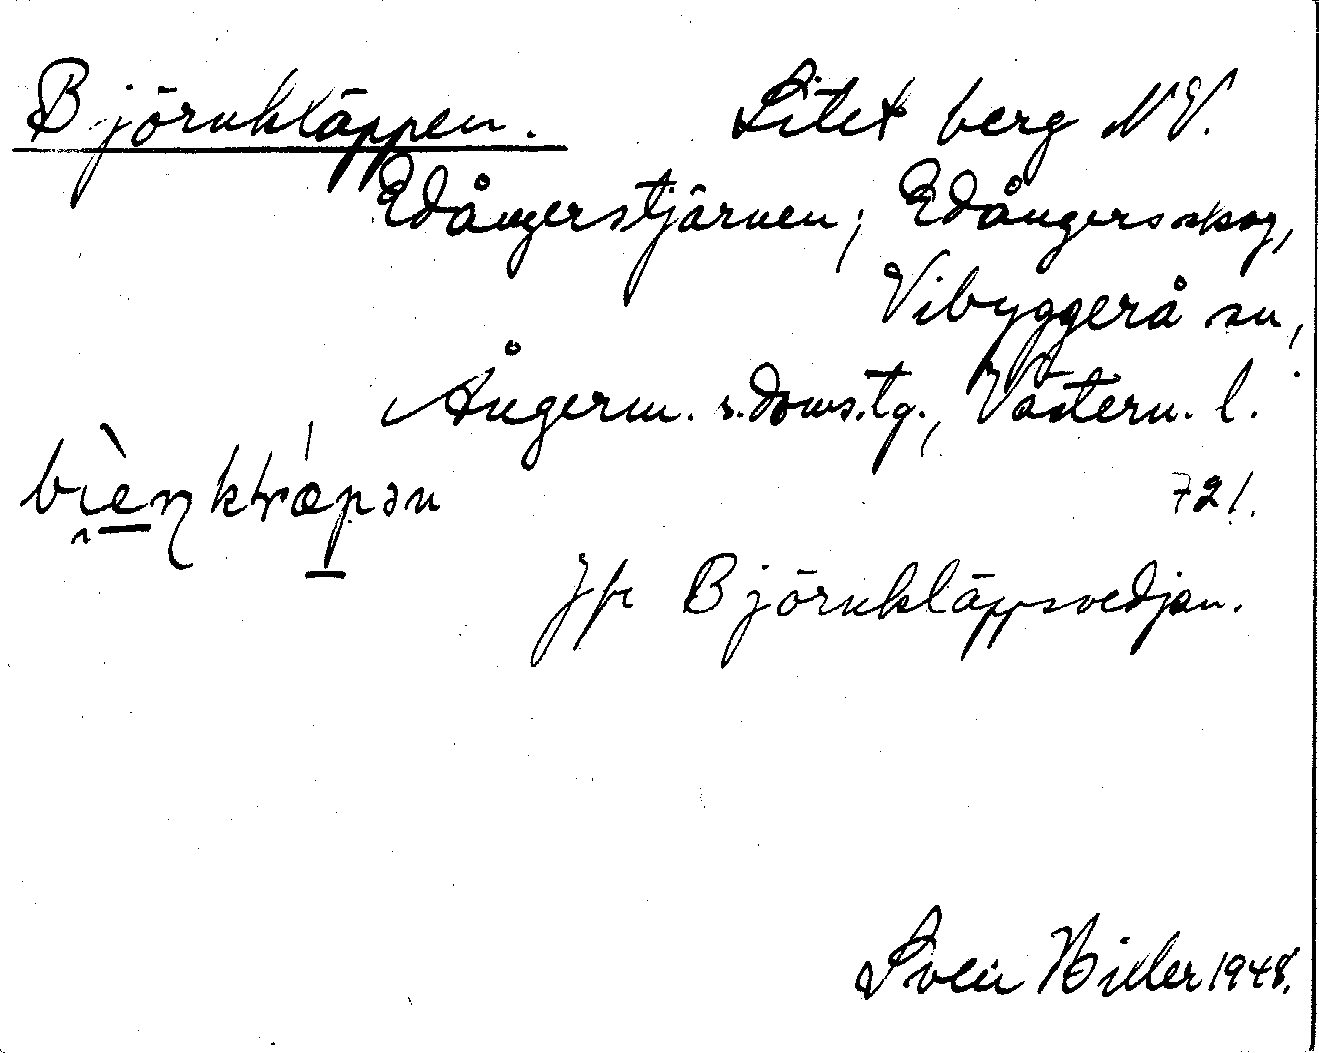 Björnkläppen. Litet berg NV.
Edångerstjärnen; Edångersskog,
Vibyggerå sn,
Ångerm. s. doms.tg., Västern. l.
721.
Jfr Björnkläppsvedjan.
Sven Hiller 1948.